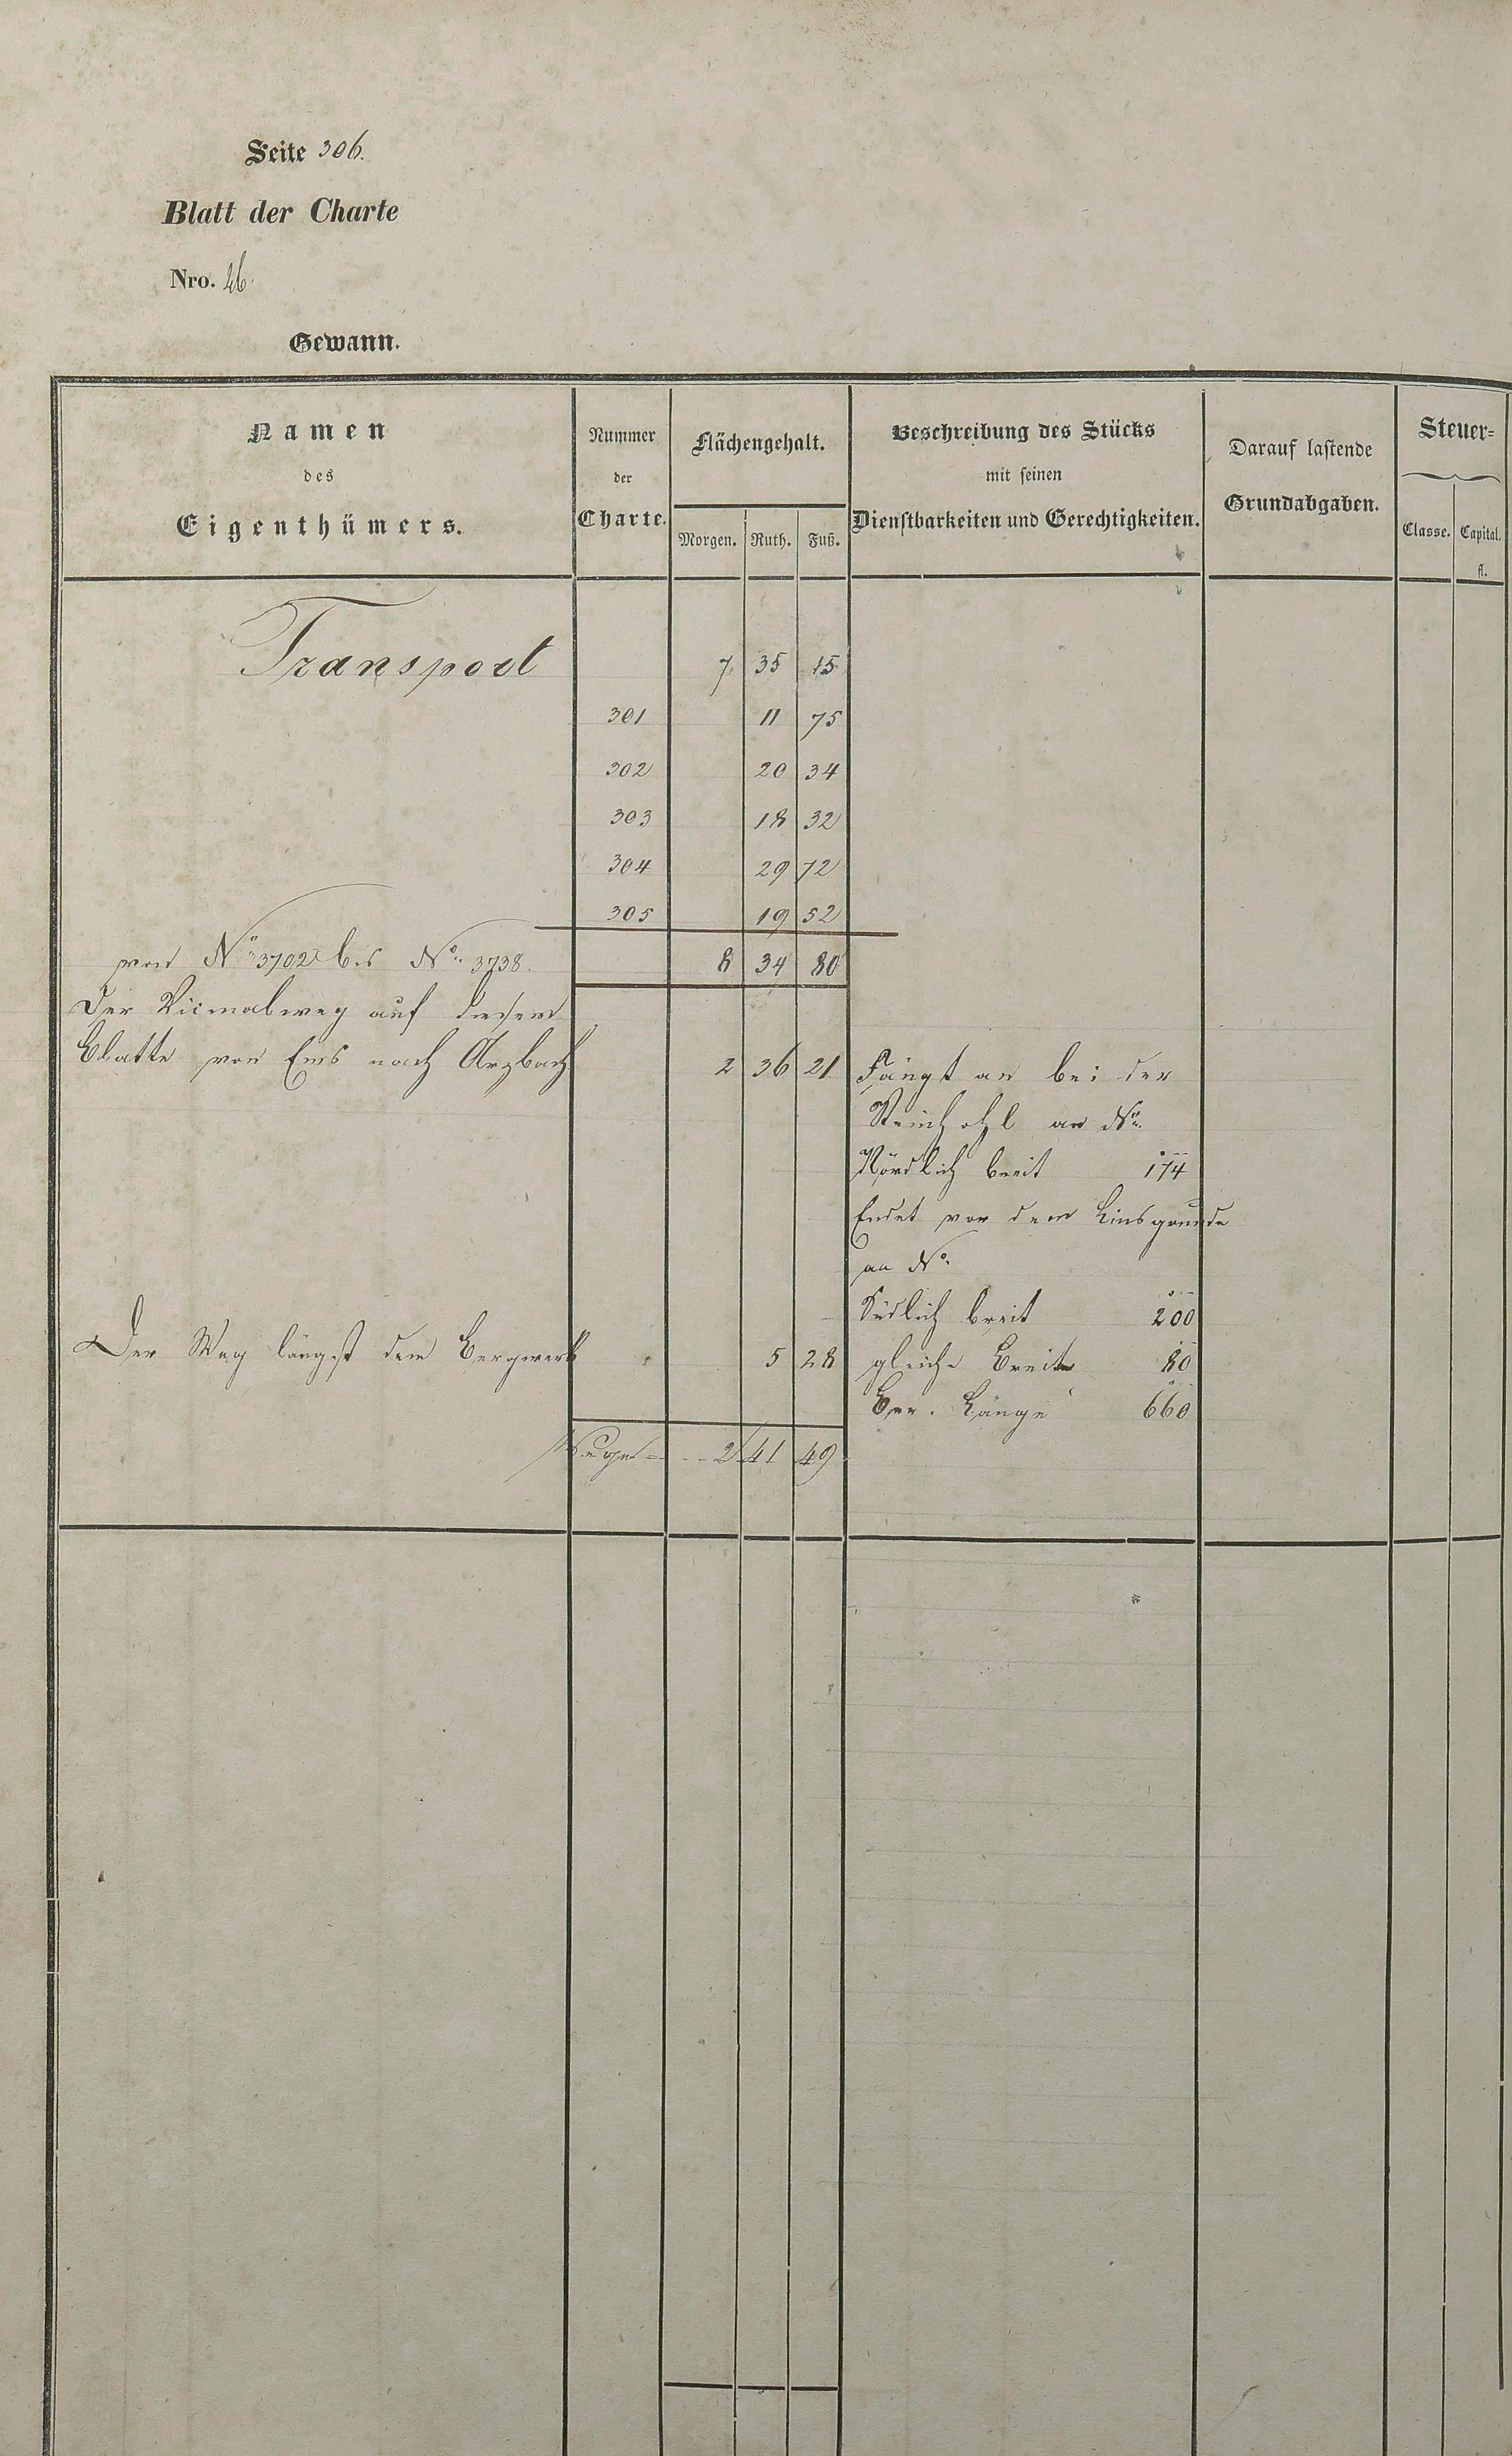 Seite 306.
Blatt der Charte
Nro. 26.
Gewann.
Namen des Eigenthümers.
Nummer der Charte.
Flächengehalt.
Morgen. Ruth. Fuß.
Beschreibung des Stücks mit seinen Dienstbarkeiten und Gerechtigkeiten.
Darauf lastende Grundabgaben.
Steuer=
Classe. Capital.
fl.
Transport 7 35 15
301 11 75
302 20 34
303 18 32
304 29 72
305 19 52
von No 3702 bis No. 3738. 8 34 80
Der Vicinalweg auf diesem
Blatte von Ems nach Arzbach 2 36 21 Fängt an bei der
an No.
Nördlich breit 174
Endet vor dem
an No.
Südlich breit 200
Der Weg längst dem Bergwerk 5 28 gleiche Breite 80
Länge 660
Wege 2 41 49